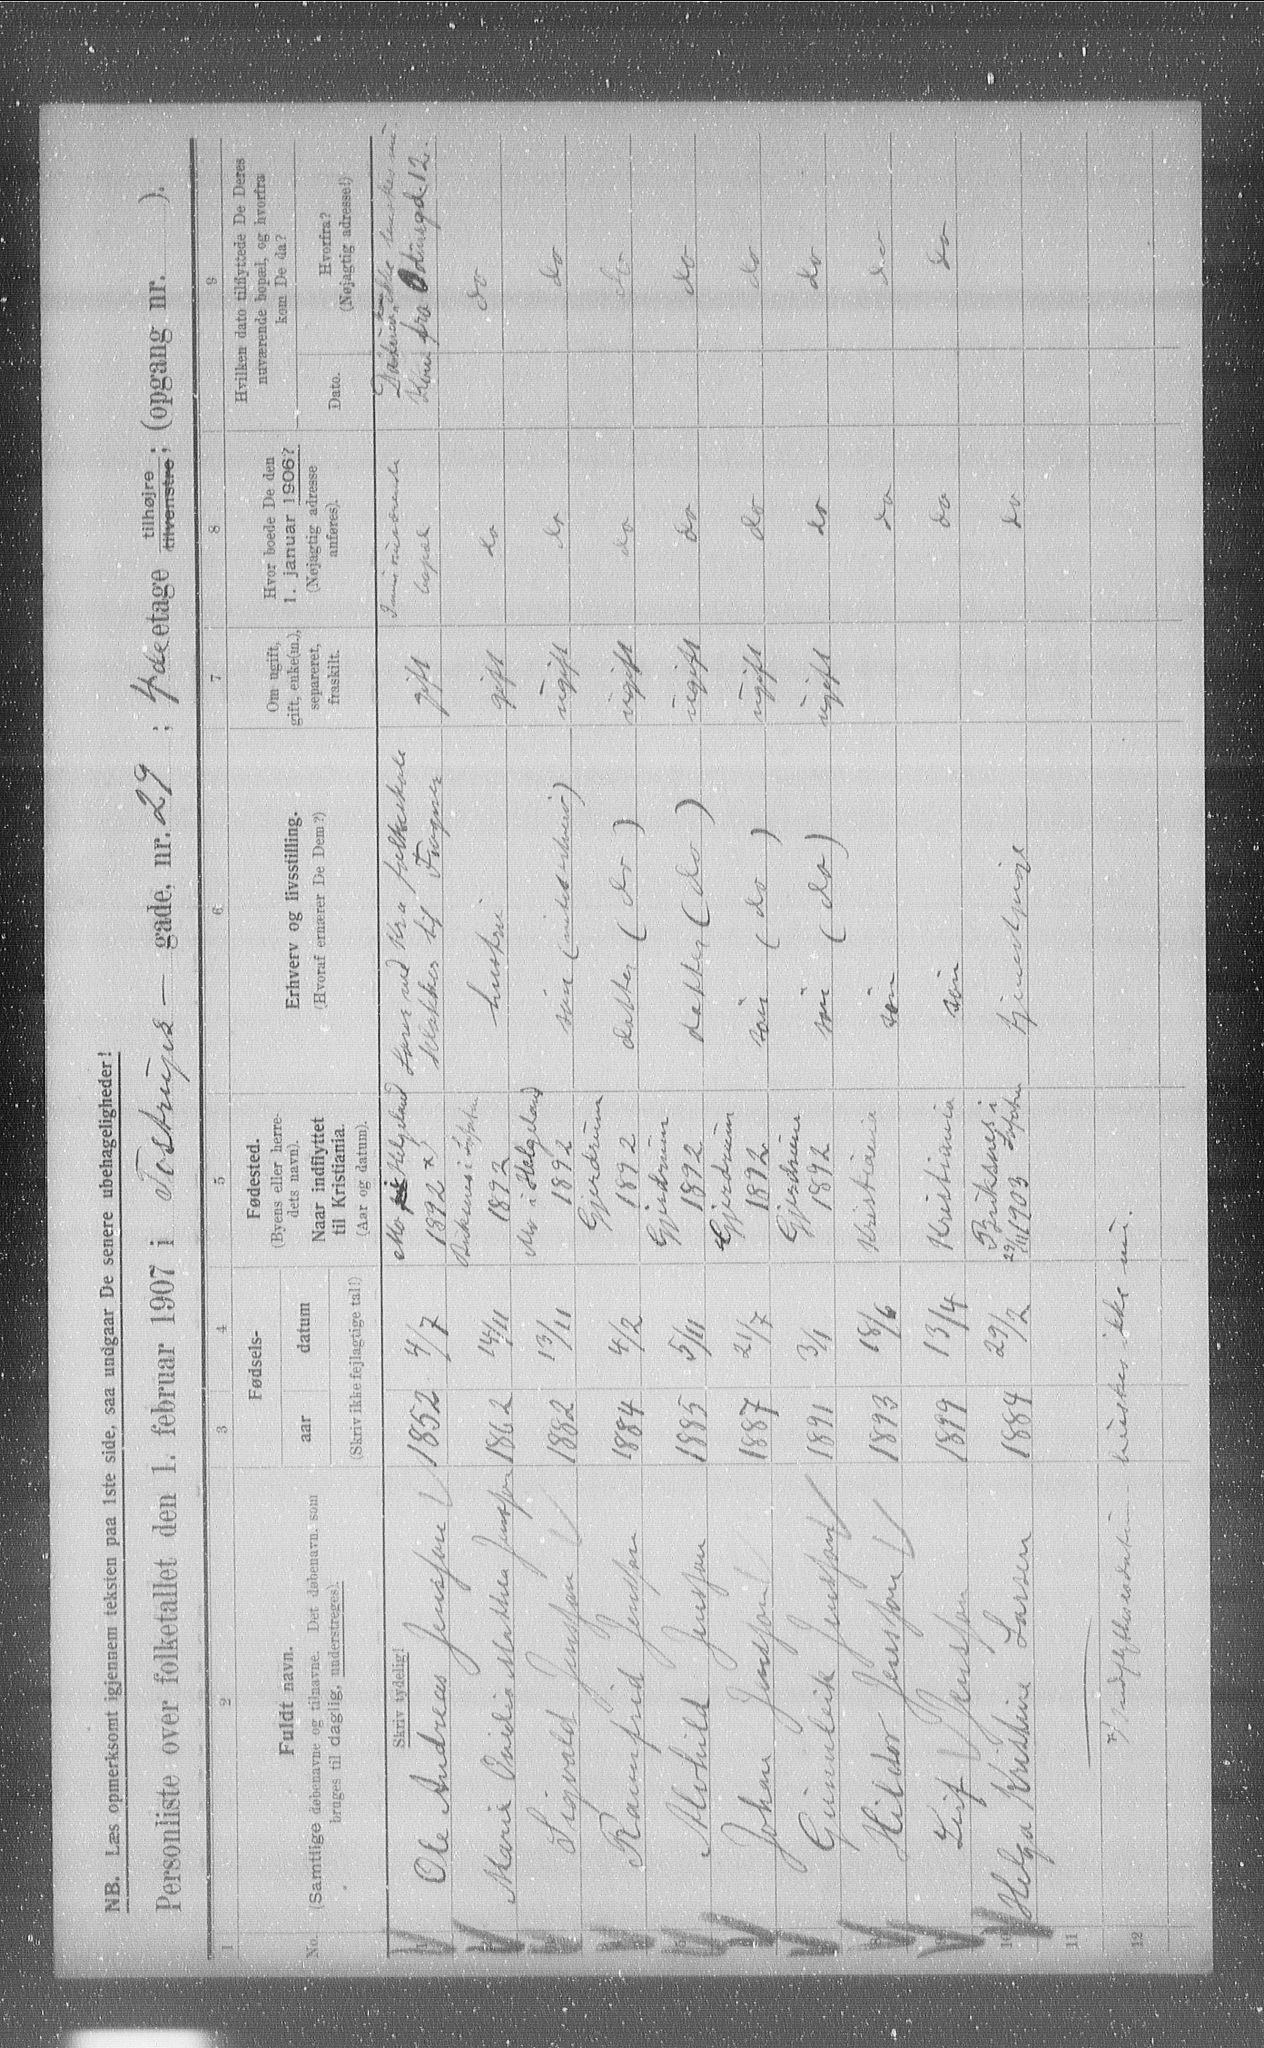 NB. Læs opmerksomt igjennem teksten paa 1ste side, saa undgaar De senere ubehageligheder!
Personliste over folketallet den 1. februar 1907 i Tostrups — gade, nr. 29 ; 4de etage tilhøjre tilvenstre ; (opgang nr. ).
1 2 3 4 5 6 7 8 9
No.
Fuldt navn.
(Samtlige døbenavne og tilnavne. Det døbenavn, som
bruges til daglig, understreges).
Fødsels-
aar datum
(Skriv ikke fejlagtige tal!)
Fødested.
(Byens eller herre-
dets navn).
Naar indflyttet
til Kristiania.
(Aar og datum).
Erhverv og livsstilling.
(Hvoraf ernærer De Dem?)
Om ugift,
gift, enke(m.),
separeret,
fraskilt.
Hvor boede De den
1. januar 1906?
(Nøjagtig adresse
anføres).
Hvilken dato tilflyttede De Deres
nuværende bopæl, og hvorfra
kom De da?
Dato.
Hvorfra?
(Nøjagtig adresse!)
Skriv tydelig!
Ole Andreas Jenssen 1852 4/7 Mo Helgeland 1892 x) Lærer ved Kra folkeskole gift nuværende bopæl
Kom fra Odinsgd. 12.
Marie Mathea Jenssen 1862 15/11 1892 hustru gift do do
Sigvald Jenssen 1882 13/11 Mo i Helgeland 1892 søn ugift do do
Rannfrid Jenssen 1884 4/2 Gjerdrum 1892 datter (do) ugift do do
Alvhild Jenssen 1885 5/11 Gjerdrum 1892 datter (do) ugift do do
Johan Jenssen 1887 21/7 Gjerdrum 1892 søn (do) ugift do do
Gunnleik Jenssen 1891 3/1 Gjerdrum 1892 søn (do) ugift do do
Hildor Jenssen 1893 18/6 Kristiania søn do do
Leif Jenssen 1899 13/4 Kristiania søn do do
10 Helga Kristine Larsen 1884 29/2 Buksnes i Lofoten 29/11 1903 tjenestpige do
11
12
x) Indflytningsdatum huskes ikke nu.